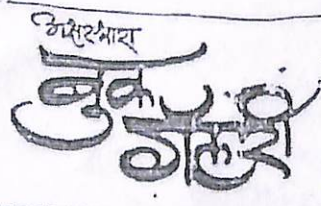 अक्षरधारा
बुक
गॅलरी